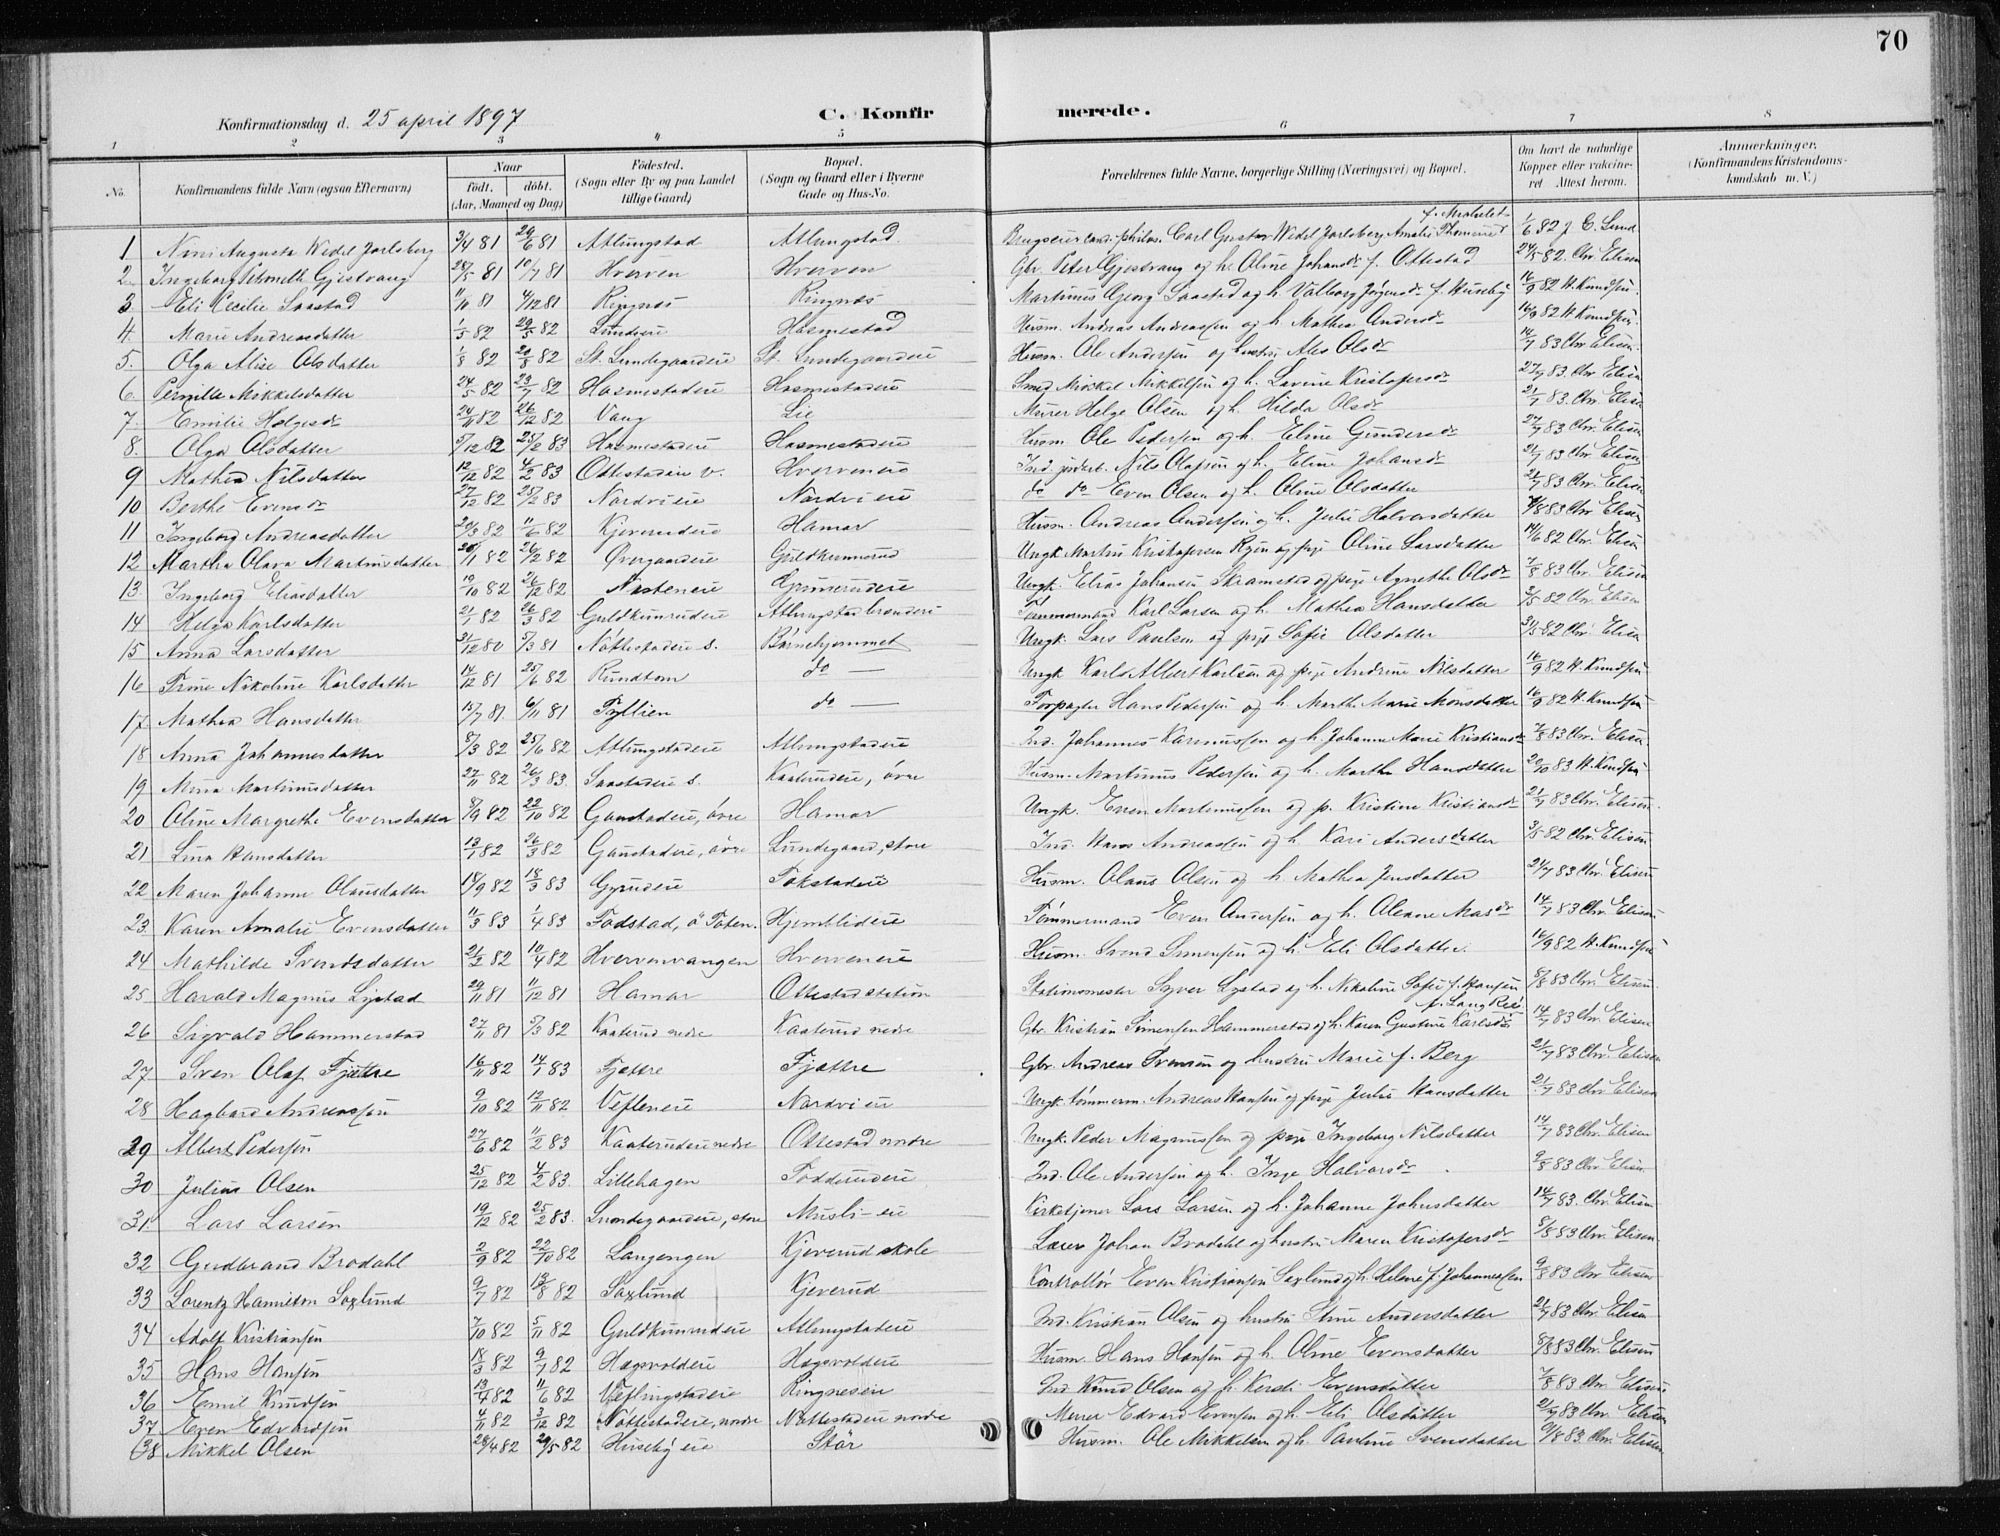 70
Konfirmationsdag d. 25 april 1897 C. Konfirmerede.
1 2 3 4 5 6 7 8
No. Konfirmandens fulde Navn (ogsaa Efternavn) Naar født. døbt. (Aar, Maaned og Dag) Fødested. (Sogn eller By og paa Landet tillige Gaard) Bopæl. (Sogn og Gaard eller i Byerne Gade og Hus-No. Forældrenes fulde Navne, borgerlige Stilling (Næringsvei) og Bopæl. Om havt de naturlige Kopper eller vaccineret Attest herom. Anmærkninger. (Konfirmandens Kristendomskundskab m. V.)
1 Augusta Wedel Jarlsberg 3/4 81 29/6 81 Atlungstad Atlungstad. Brugseier cand. philos. Carl Gustav Wedel Jarlsberg Amalie 1/6 82 C. Lund
2. Ingeborg Petronelle Gjestvang 28/5 81 10/7 81 Hverven Hverven Gbr. Peter Gjestvang og h. Oline Johansdr f. Ottestad 24/5 82. Chr. Elisen
3 Eli Cecilie Saastad 11/10 81 4/12 81 Ringnæs Ringnæs Martinus Georg Saastad og h. Valborg Jørgensdr f. Huseby 16/9 82 H. Knudsen.
4. Marie Andreasdatter 1/5 82 29/5 82 Lundeie Hosmestad Husm. Andreas Andreassen og h. Mathea Andersdr 16/9 82 H. Knudsen.
5. Olga Alise Olsdatter 1/8 82 20/8 82 St. Lundegaardeie St. Lundegaardeie Husm. Ole Andersen og hustru Olsdr 14/7 83 Chr. Elisen.
6. Pernille Mikkelsdatter 24/5 82 23/7 82 Hosmestadeie Hosmestadeie Smed Mikkel Mikkelsen og h. Lavine Kristofersdr 27/7 83. Chr. Elisen
7. Emilie Helgesdr 24/11 82 26/12 82 Vang Lie Murer Helge Olsen og h. Hilda Olsdr 21/7 83. Chr. Elisen
8. Olga Olsdatter 5/12 82 25/2 83 Hosmestadeie Hosmestadeie Husm. Ole Pedersen og h. Eline Gundersdr 27/7 83 Chr. Elisen
9 Mathea Nilsdatter 12/12 82 4/2 83 Ottestadeie v. Hverveneie Ind. jordarb. Nils Olafsen og h. Eline Johansdr 21/7 83 Chr. Elisen
10 Berthe Evensdr 27/12 82 25/2 83 Nordvieie Nordvieie do do Even Olsen og h. Oline Olsdatter 21/7 83 Chr. Elisen
11 Ingeborg Andreasdatter 20/3 82 11/6 82 Kjeverudeie Hamar Husm. Andreas Andersen og h. Julie Halvorsdatter 9/8 83 Chr. Elisen
12 Martha Olava Martinusdatter 20/11 82 26/12 82 Øvergaardeie Guldkunnerud Ungk. Martin Kristofersen Ryen og pige Oline Larsdatter 14/6 82 Chr. Elisen
13. Ingeborg Eliasdatter 19/10 82 26/12 82 Nosteneie Grimerudeie Ungk. Elias Johansen Skramstad og pige Agnethe Olsdr 7/8 83 Chr. Elisen
14 Helga Karlsdatter 21/1 82 26/3 82 Guldkunrudeie Atlungstad brænderi Tømmermand Karl Larsen og h. Mathea Hansdatter 3/5 82 Chr. Elisen
15 Anna Larsdatter 31/12 80 5/3 81 Nøttestadeie s. Børnehjemmet Ungk. Lars Paulsen og pige Sofie Olsdatter 31/5 82 Chr. Elisen
16 Trine Nikoline Karlsdatter 14/12 81 25/6 82 Rundtom do — Ungk Karl Albert Karlsen og pige Andrine Nilsdatter 16/9 82 H. Knudsen
17. Mathea Hansdatter 15/7 81. 6/11 81 Fyllien do — Forpagter Hans Pedersen og h. Marthe Marie Monsdatter 16/9 82 H. Knudsen
18 Anna Johannesdatter 8/3 82 25/6 82 Atlungstadeie Atlungstadeie Ind. Johannes Rasmussen og h. Johanne Marie Kristiansdr 7/8 83 Chr. Elisen
19 Mina Martinusdatter 27/11 82 26/3 83. Saastadeie s. Kaaterudeie, övre Husm. Martinus Pedersen og h. Marthe Hansdatter 20/10 83 H. Knudsen
20 Oline Margrethe Evensdatter 8/9 82 22/10 82 Gaustadeie, övre Hamar Ungk. Even Martinussen og p. Kristine Kristiansdr 21/7 83 Chr. Elisen.
21 Lina Hansdatter 13/1 82 26/3 82 Gaustadeie, övre Lundegaard, store Ind. Hans Andreassen og h. Kari Andersdatter 3/5 82 Chr. Elisen
22 Maren Johanne Olausdatter 18/9 82 18/3 83 Gyrudeie Tokstadeie Husm. Olaus Olsen og h. Mathea Jensdatter 21/7 83 Chr. Elisen
23. Karen Amalie Evensdatter 11/3 83 1/4 83 Fodstad, ö Toten. Hjemblideie Tømmermand Even Andersen og h. Olenne Masdr 14/7 83 Chr. Elisen
24 Mathilde Svendsdatter 21/2 82 10/4 82 Hvervenvangen Hverveneie Husm. Svend Simensen og h. Eli Olsdatter. 16/9 82 H. Knudsen
25 Harald Magnus Lystad 29/11 81 11/12 81 Hamar Ottestad station Stationsmester Syver Lystad og h. Nikoline Sofie f. Hansen 8/8 83 Chr. Elisen.
26 Sigvald Hammerstad 27/11 81 5/3 82 Kaaterud nedre Kaaterud nedre Gbr. Kristian Simensen Hammerstad og h. Karen Gustine Karlsdr 14/7 83 Chr. Elisen
27 Sven Olaf Fjætre 16/11 82 14/1 83 Fjætre Fjætre Gbr. Andreas Svensen og hustru Marie f. Berg 21/7 83 Chr. Elisen
28 Hagbard Andreassen 9/10 82 12/11 82 Vefleneie Nordvieie Ungk. tømmerm. Andreas Hansen og pige Julie Hansdatter 21/7 83 Chr. Elisen
29 Albert Pedersen 27/6 82 11/2 83 Kaaterudeie nedre Ottestad nordre Ungk. Peder Magnussen og pige Ingeborg Nilsdatter 14/7 83 Chr. Elisen
30 Julius Olsen 25/12 82 4/2 83. Lillehagen Fodderudeie Ind. Ole Andersen og h. Inge Halvorsdr 9/8 83 Chr. Elisen
31 Lars Larsen 19/12 82 25/2 83. Lundegaardeie, store Musli-eie Kirketjener Lars Larsen og h. Johanne Johnsdatter 14/7 83. Chr. Elisen
32 Gudbrand Brodahl 2/9 82 22/10 82 Langengen Kjeverud skole Lærer Johan Brodahl og hustru Maren Kristofersdr 8/8 83 Chr. Elisen
33 Lorentz Hamilton Saxlund 9/7 82 13/8 82 Saxlund Kjeverud Kontrollör Even Kristiansen Saxlund og h. Helene f. Johannessen 9/8 83 Chr. Elisen
34 Adolf Kristiansen 7/10 82 5/11 82 Guldkunrudeie Atlungstadeie Ind. Kristian Olsen og hustru Stine Andersdatter 21/7 83 Chr. Elisen
35 Hans Hansen 18/3 82 9/7 82 Hagsvoldeie Hagsvoldeie Husm. Hans Hansen og h. Oline Evensdatter 8/8 83 Chr. Elisen
36 Emil Knudsen 13/4 82 11/6 82 Veflingstadeie Ringneseie Ind Knud Olsen og h. Kersti Evensdatter 7/8 83 Chr. Elisen
37 Even Edvardsen 4/11 82 3/12 82 Nøttestadeie, nordre Nøttestadeie nordre Murer Edvard Evensen og h. Eli Olsdatter 21/7 83 Chr. Elisen
38 Mikkel Olsen 28/4 82 29/5 82 Huseby eie Stör Husm. Ole Mikkelsen og h. Pauline Svensdatter 9/8 83. Chr. Elisen